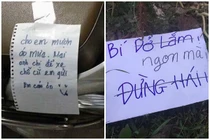 cho em mượn
áo mưa. Mai
anh chị để xe
chỗ cũ em gửi
Em cảm ơn
Bí Dở Lắm!
ngon mà
ĐỪNG HÁI!